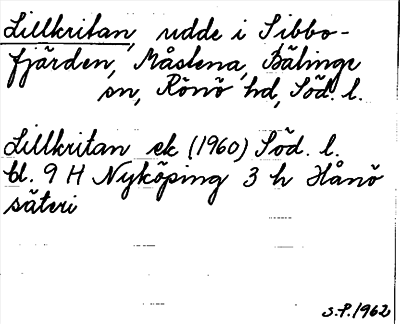 Lillkritan, udde i Sibbo-
fjärden, Måstena, Bälinge
sn, Rönö hd, Söd. l.
Lillkritan ek (1960) Söd. l.
bl. 9 H Nyköping 3 h Hånö
säteri
S.P. 1962